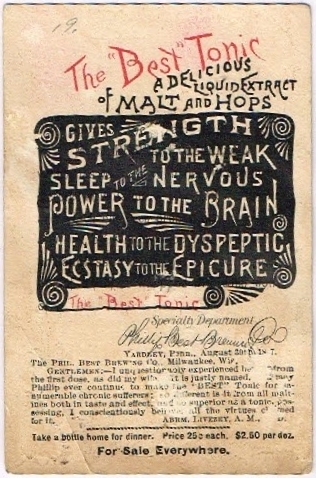 19.
The "Best" Tonic
A DELICIOUS
LIQUID EXTRACT
OF MALT AND HOPS
GIVES STRENGTH
TO THE WEAK
SLEEP TO THE NERVOUS
POWER TO THE BRAIN
HEALTH TO THE DYSPEPTIC
ECSTASY TO THE EPICURE
The "Best" Tonic
Specialty Department
Phillip Best Brewing Co
YARDLEY, PENN., August
The PHIL. BEST BREWING CO., Milwaukee, Wis.
GENTLEMEN:—I unquestionably experienced from
the first dose, as did my wife it is justly named.
Phillip ever continue to make the "BEST" Tonic for
numerable chronic sufferers; different is it from all malt-
ines both in taste and effect, and so superior as a tonic,
sessing, I conscientiously believe, all the virtues claimed
for it. ABRM. LIVEZEY, A. M.,
Take a bottle home for dinner. Price 25c each. $2.50 per doz.
For Sale Everywhere.